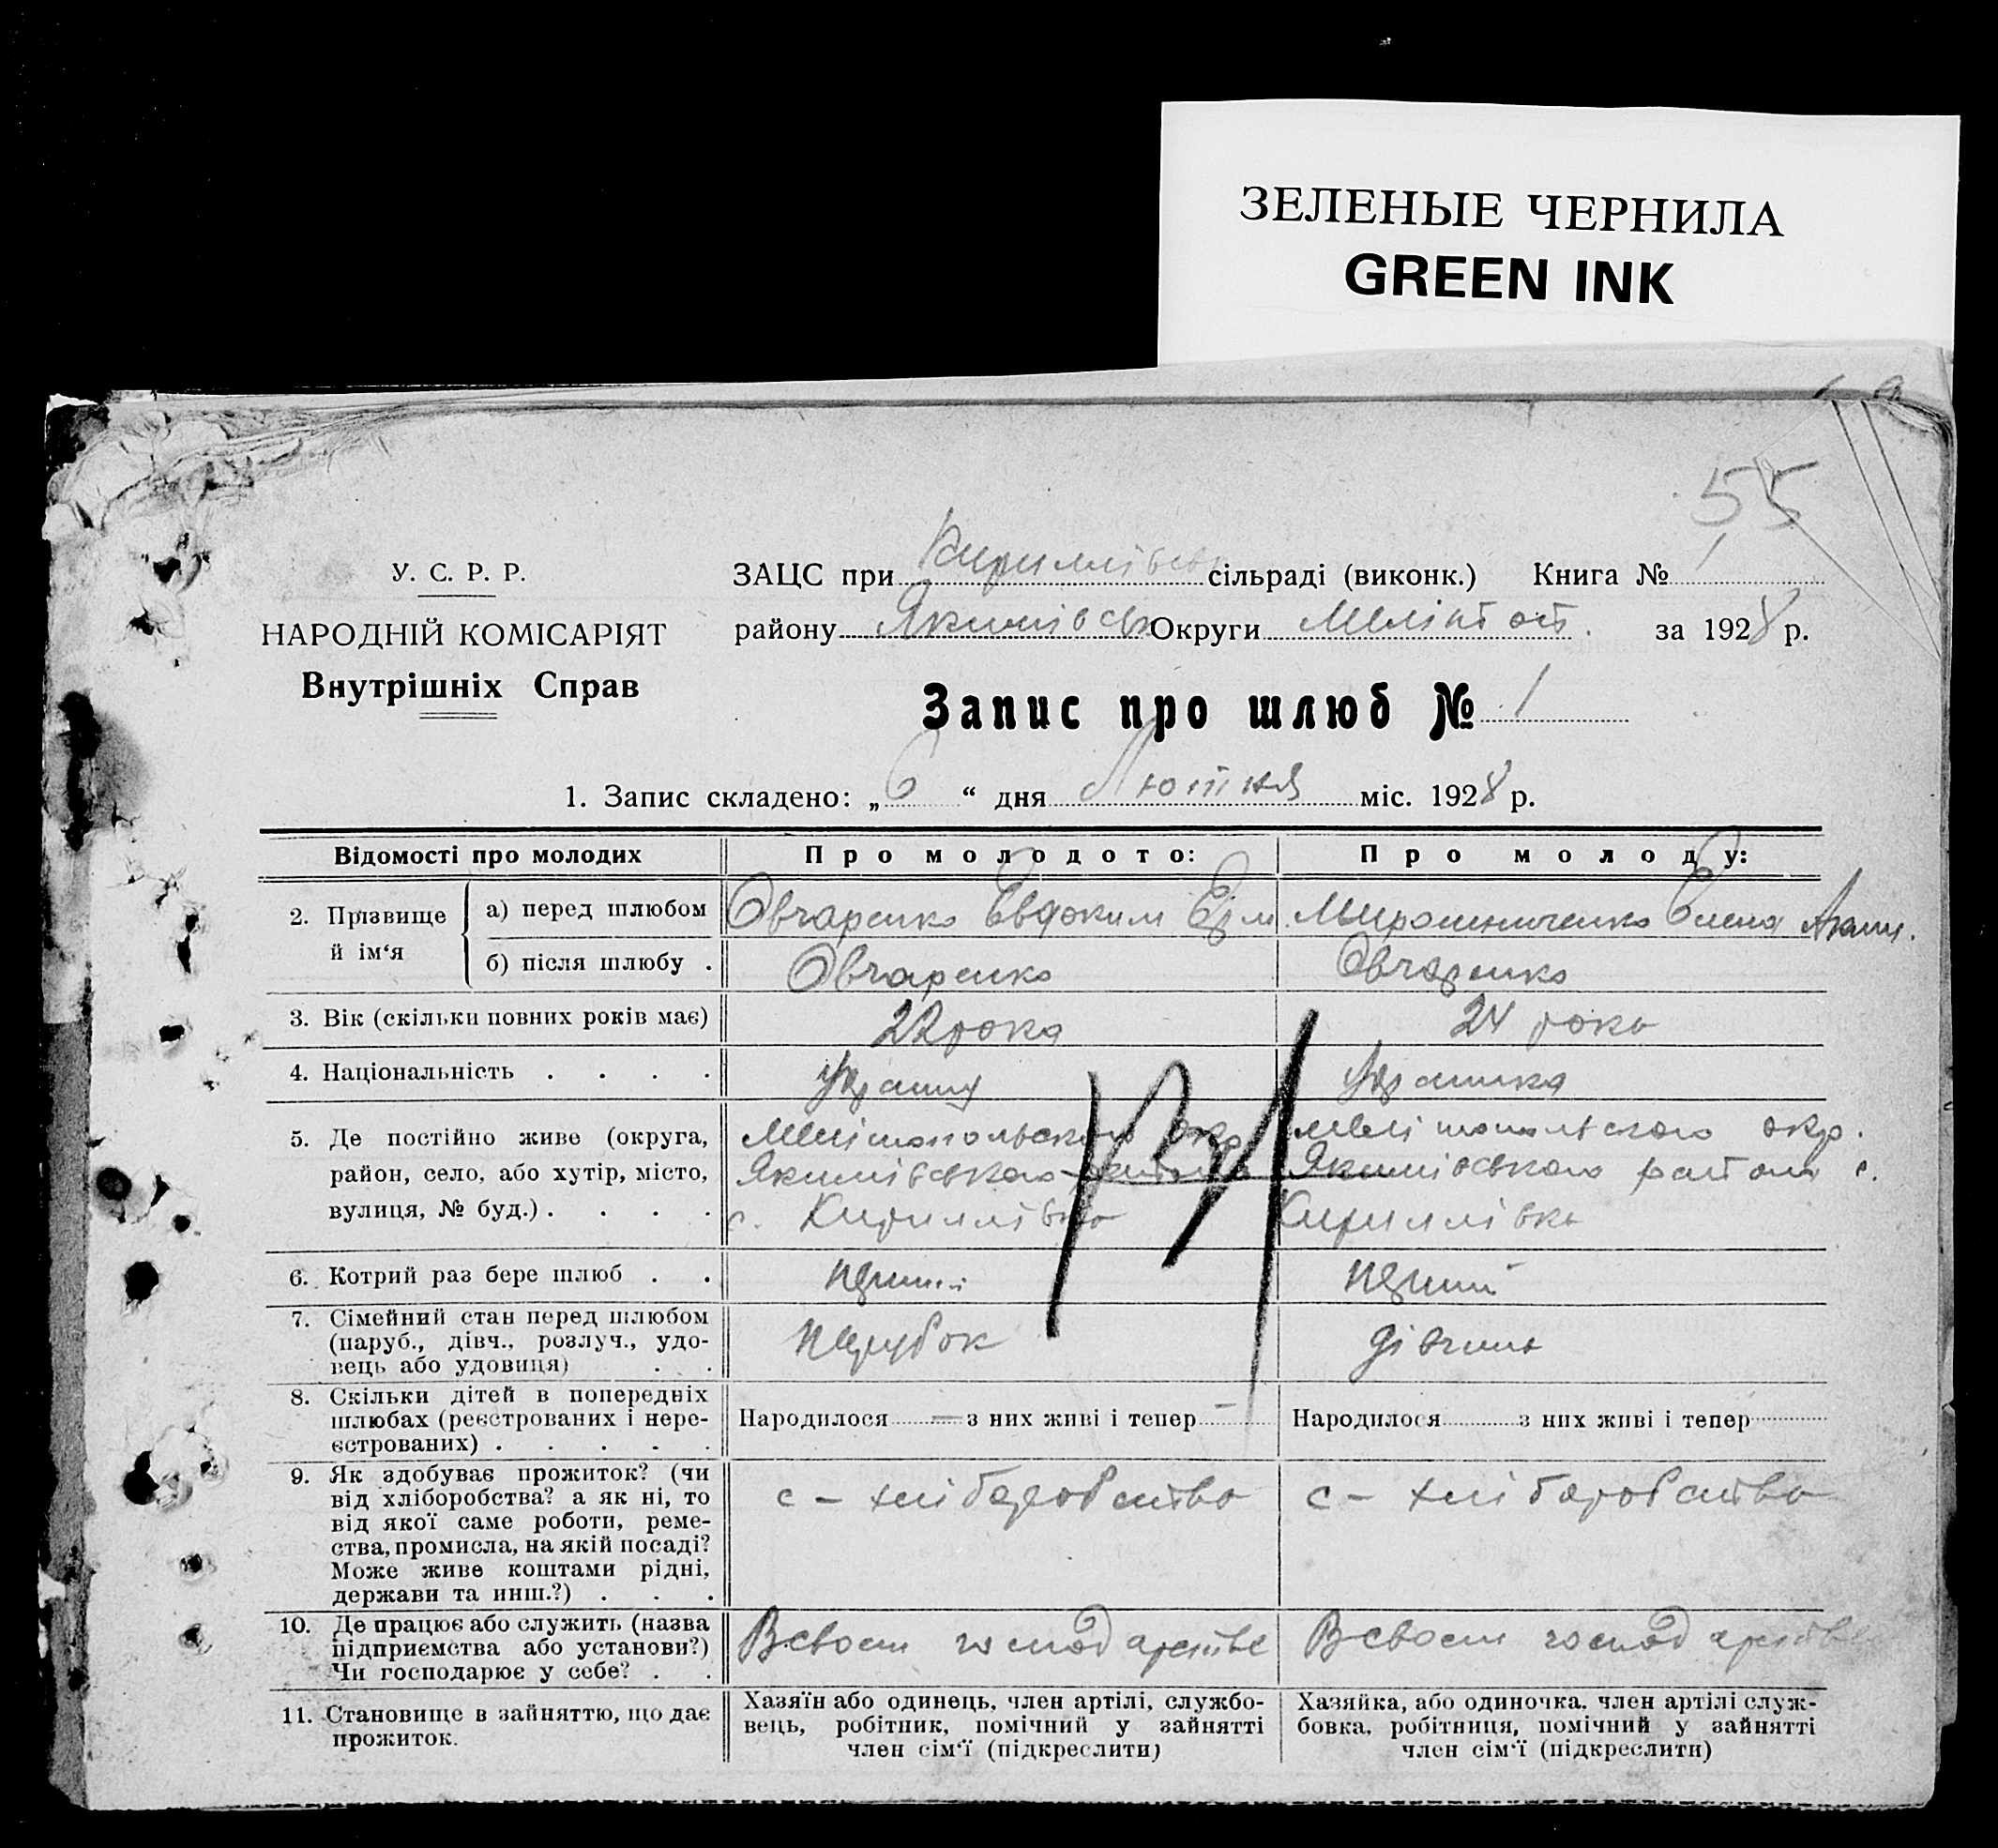 ЗЕЛЕНЫЕ ЧЕРНИЛА
GREEN INK
55
У. С. Р. Р.
НАРОДНІЙ КОМІСАРІЯТ
Внутрішніх Справ
ЗАЦС при Кириллівськ сільраді (виконк.) Книга № 1
району Якимівськ Округи Меліпот. за 1928 р.
Запис про шлюб № 1
1. Запис складено: „6“ дня Лютня міс. 1928 р.
Відомості про молодих
Про молодого:
Про молоду:
2. Прізвище й ім‘я
а) перед шлюбом Овчаренко Евдоким Мирошниченко Елена
б) після шлюбу . Овчаренко Овчаренко
3. Вік (скільки повних років має) 22 рока 24 рока
4. Національність . . . . Украинка
5. Де постійно живе (округа,
район, село, або хутір, місто,
вулиця, № буд.) . . . .
Мелітопольского окр.
Якимівського района
с. Кириллівка
Мелітопольского окр.
Якимівського района с.
Кириллівка
6. Котрий раз бере шлюб . . первий первий
7. Сімейний стан перед шлюбом
(паруб., дівч., розлуч., удо-
вець або удовиця) . .
парубок
дівчина
8. Скільки дітей в попередніх
шлюбах (реєстрованих і нере-
єстрованих) . . . . .
Народилося — з них живі і тепер —
Народилося з них живі і тепер
9. Як здобуває прожиток? (чи
від хліборобства? а як ні, то
від якої саме роботи, реме-
ства, промисла, на якій посаді?
Може живе коштами рідні,
держави та инш.?) . . .
с – хлібаробство
с – хлібаробство
10. Де працює або служить (назва
підприємства або установи?)
Чи господарює у себе? . .
В своем господарстве
В своем господарстве
11. Становище в зайняттю, що дає
прожиток.
Хазяїн або одинець, член артілі, службо-
вець, робітник, помічний у зайнятті
член сім‘ї (підкреслити)
Хазяйка, або одиночка, член артілі служ-
бовка, робітниця, помічний у зайнятті
член сім‘ї (підкреслити)